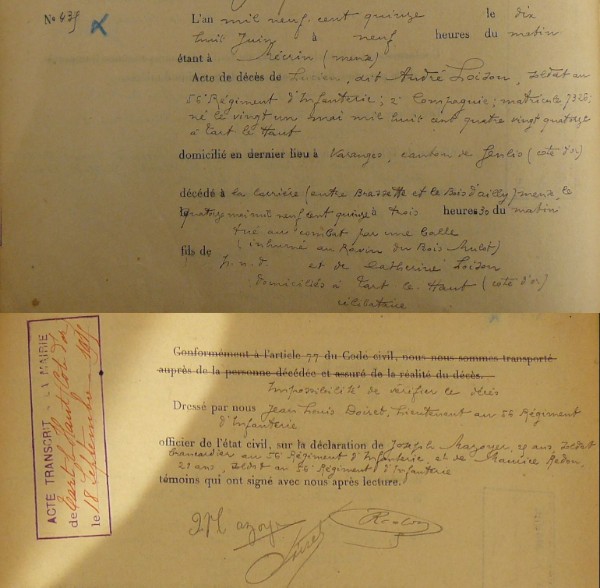 No 439
L'an mil neuf cent quinze le dix
huit Juin à neuf heures du matin
étant à Mécrin (meuse)
Acte de décès de Lucien, dit André Loison, soldat au
56e Régiment d'Infanterie; 2e Compagnie; matricule 7326;
né le vingt un mai mil huit cent quatre vingt quatorze
à Tart le Haut
domicilié en dernier lieu à Varanges, canton de Genlis (côte d'or)
décédé à la carrière (entre Brassette et le Bois d'ailly) meuse, le
quatorze mai mil neuf cent quinze à trois heures 30 du matin
tué au combat par une balle
(inhumé au Ravin du Bois Mulot)
fils de
p.n.d. et de Catherine Loison
domiciliés à Tart le Haut (côte d'or)
célibataire
Conformément à l'article 77 du Code civil, nous nous sommes transporté
auprès de la personne décédée et assuré de la réalité du décès.
Impossibilité de vérifier le décès
Dressé par nous Jean Louis Doiret, Lieutenant au 56 Régiment
d'Infanterie
officier de l'état civil, sur la déclaration de Joseph Mazoyer, 29 ans, soldat
brancardier au 56e Régiment d'Infanterie, et de Maurice Redon,
21 ans, soldat au 56e Régiment d'Infanterie
témoins qui ont signé avec nous après lecture.
Mazoyer
Doiret
Redon
ACTE TRANSCRIT A LA MAIRIE
de Tart le Haut Côte d'or
le 18 Septembre